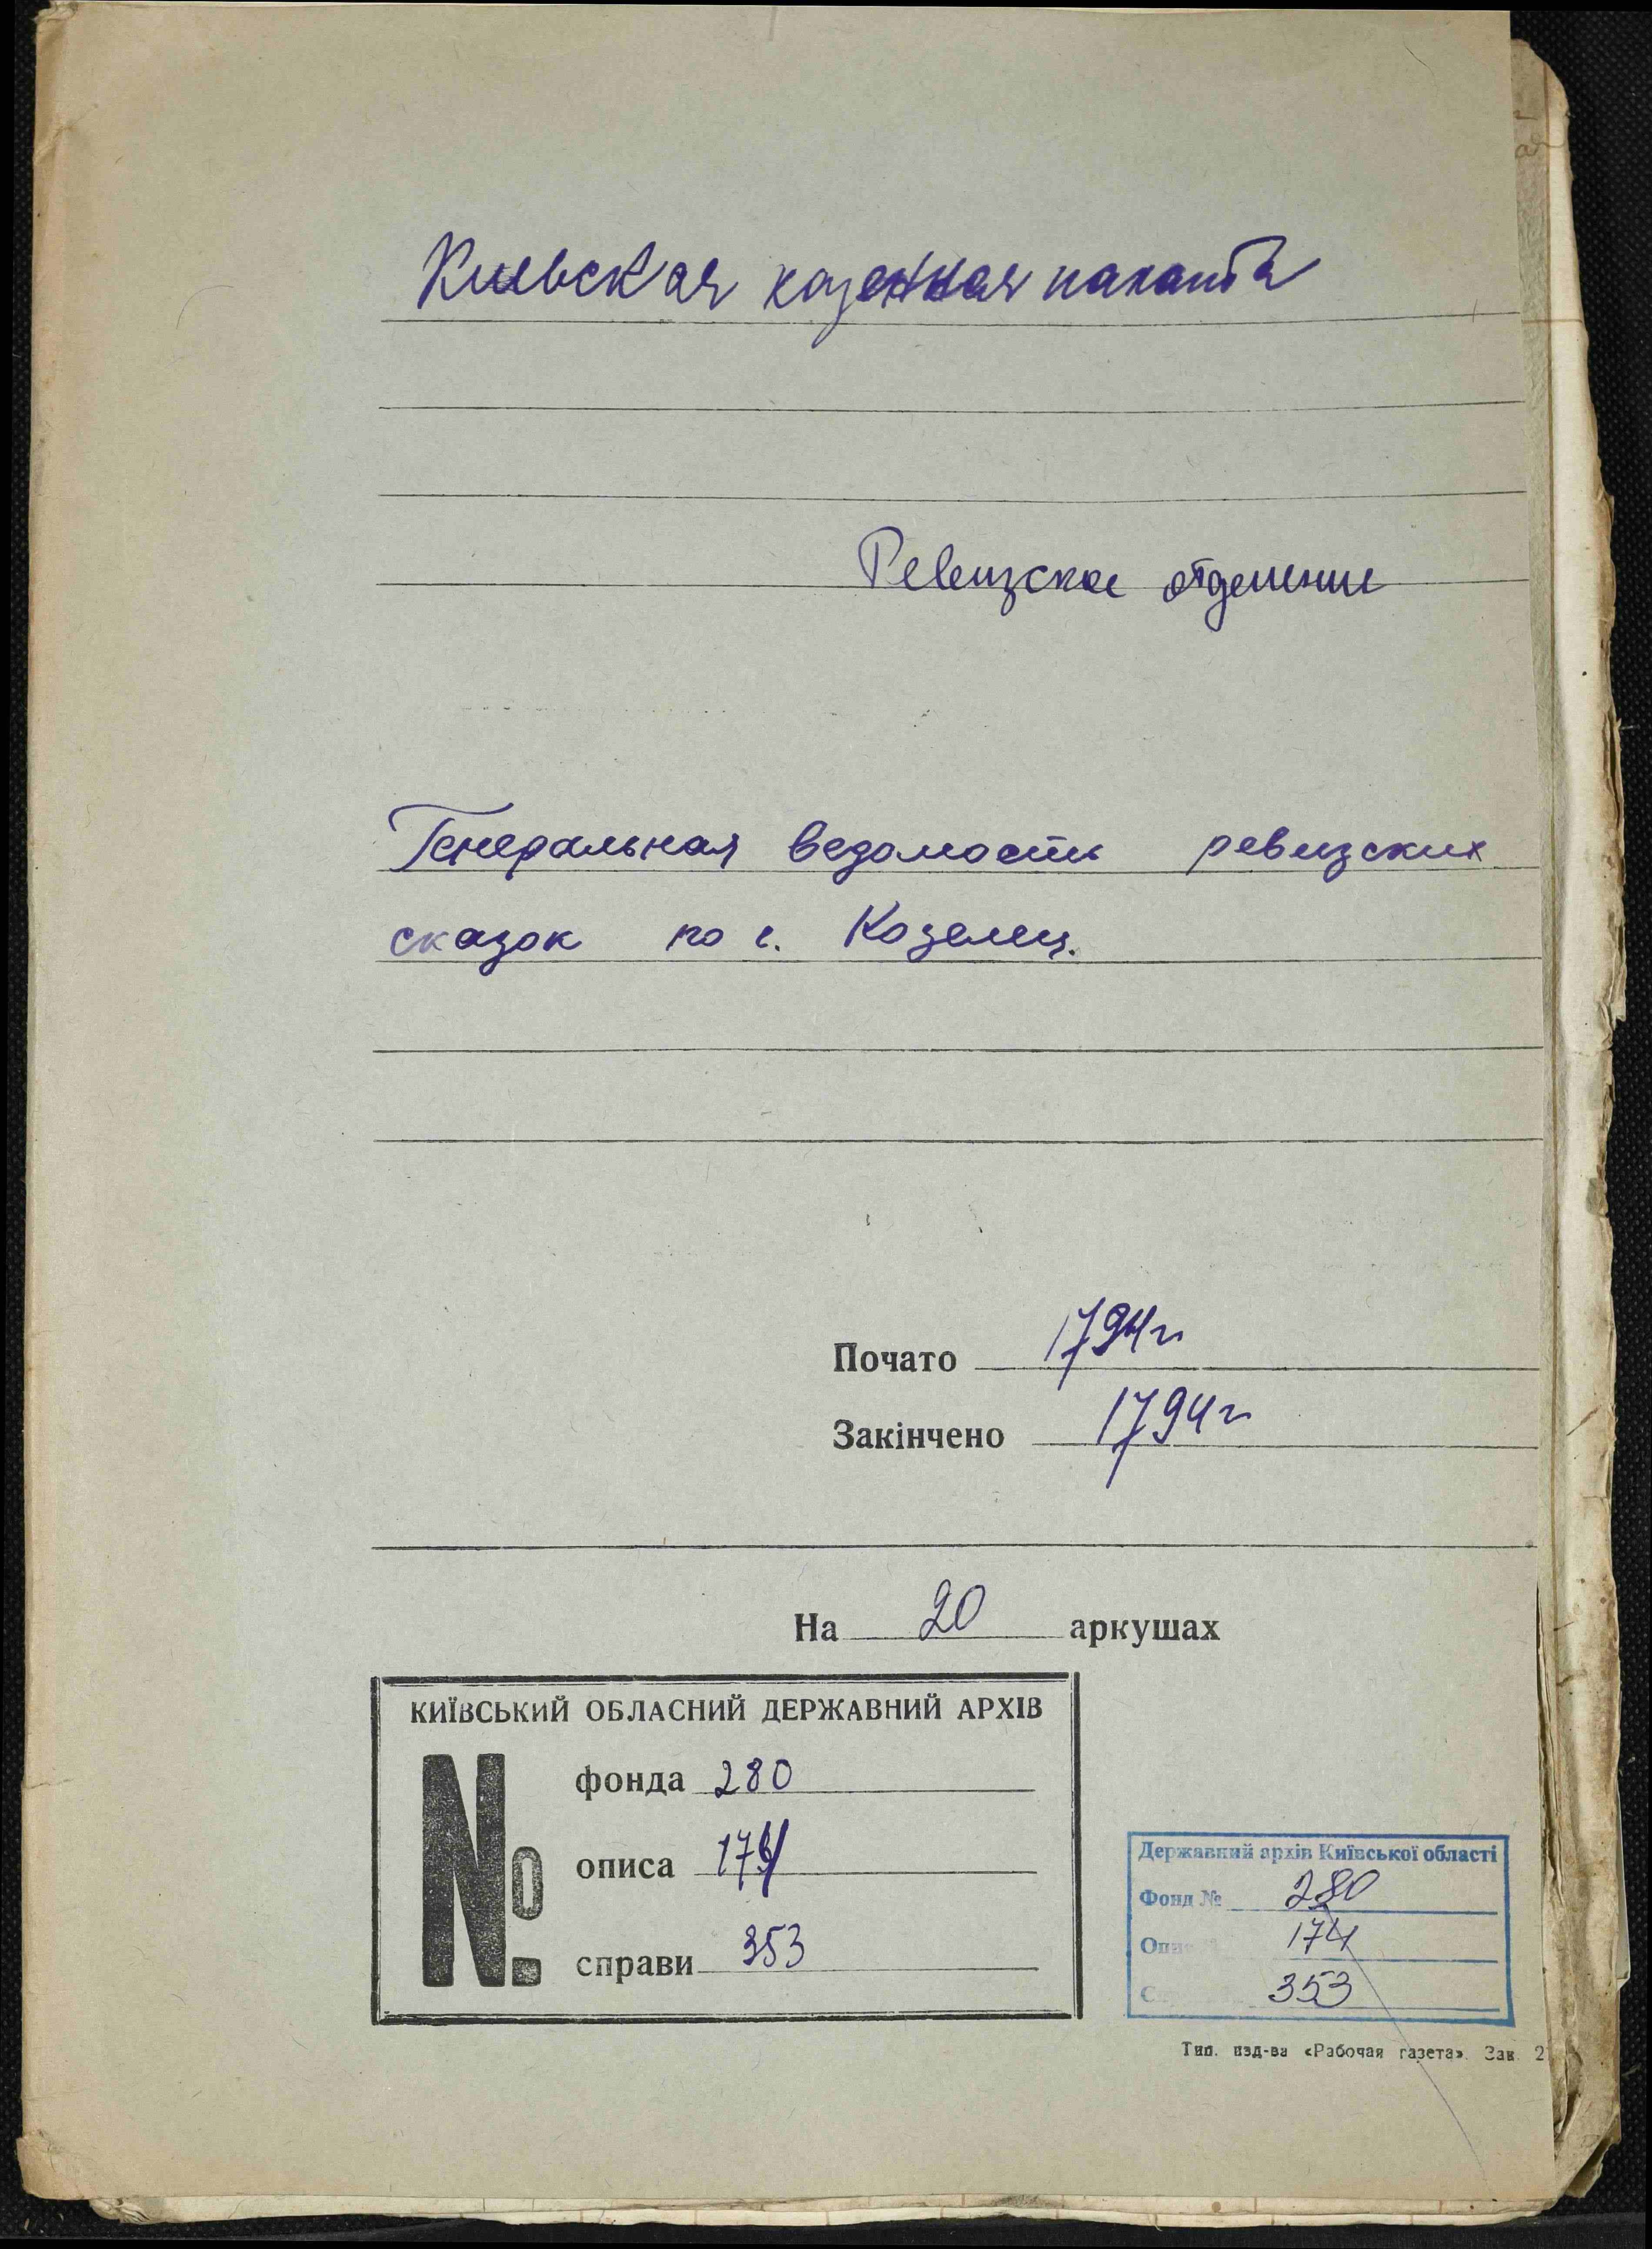 Киевская казенная палата
Ревизское отделение
Генеральная ведомость ревизских
сказок по г. Козелец.
Почато 1794 г
Закінчено 1794 г
На 20 аркушах
КИЇВСЬКИЙ ОБЛАСНИЙ ДЕРЖАВНИЙ АРХІВ
№
фонда 280
описа 174
справи 353
Державний архів Київської області
Фонд № 280
Опис 174
353
Тип. изд-ва «Рабочая газета». Зак. 2